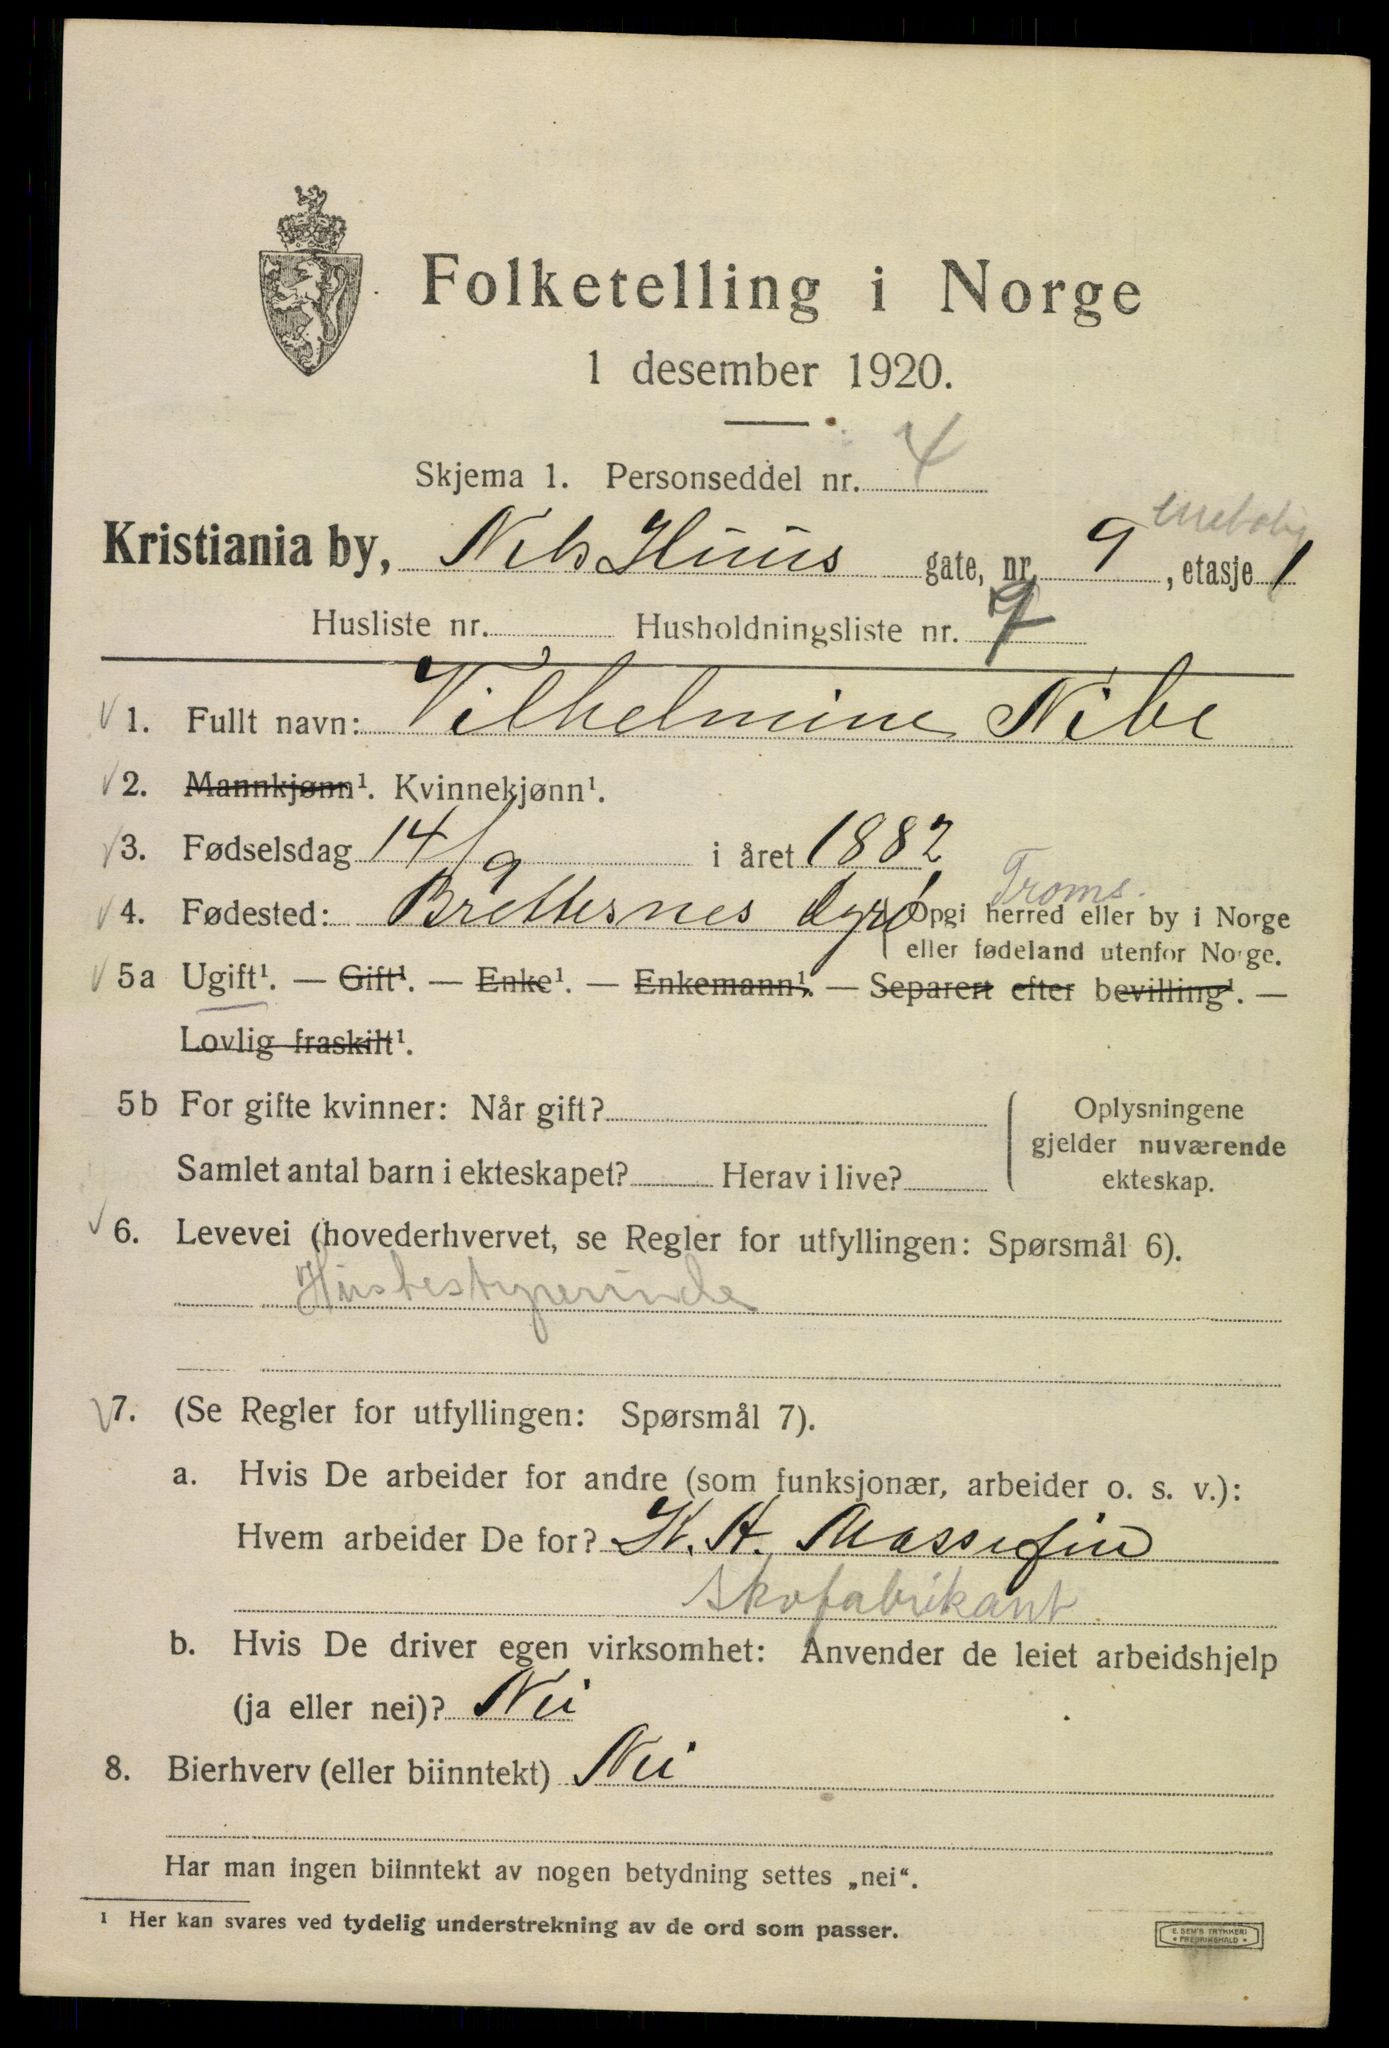 Folketelling i Norge
1 desember 1920.
Skjema 1. Personseddel nr. 4
Kristiania by, Nils Huus gate, nr. 9, etasje 1
enebolig
Husliste nr. Husholdningsliste nr. 7
1. Fullt navn: Vilhelmine Nibe
2. Mannkjønn¹. Kvinnekjønn¹.
3. Fødselsdag 14/9 i året 1882
4. Fødested: Brettesnes Dyrø Troms.
Opgi herred eller by i Norge
eller fødeland utenfor Norge.
5a Ugift¹. — Gift¹. — Enke¹. — Enkemann¹. — Separert efter bevilling¹. —
Lovlig fraskilt¹.
5b For gifte kvinner: Når gift?
Samlet antal barn i ekteskapet? Herav i live?
Oplysningene
gjelder nuværende
ekteskap.
6. Levevei (hovederhvervet, se Regler for utfyllingen: Spørsmål 6).
Husbestyrerinde
7. (Se Regler for utfyllingen: Spørsmål 7).
a. Hvis De arbeider for andre (som funksjonær, arbeider o. s. v.):
Hvem arbeider De for? K. A.
skofabrikant
b. Hvis De driver egen virksomhet: Anvender de leiet arbeidshjelp
(ja eller nei)? Nei
8. Bierhverv (eller biinntekt) Nei
Har man ingen biinntekt av nogen betydning settes „nei“.
¹ Her kan svares ved tydelig understrekning av de ord som passer.
E. SEM'S TRYKKERI
FREDRIKSHALD